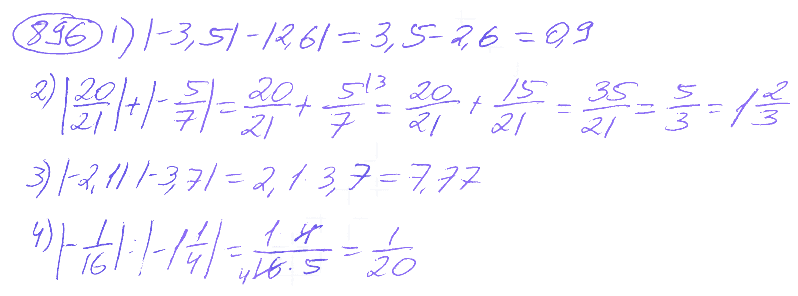 896 1) |-3,5| - |2,6| = 3,5 - 2,6 = 0,9
2) |20/21| + |-5/7| = 20/21 + 5/7 |3 = 20/21 + 15/21 = 35/21 = 5/3 = 1 2/3
3) |-2,1| |-3,7| = 2,1 · 3,7 = 7,77
4) |-1/16| : |-1 1/4| = 1·4/4|16·5 = 1/20